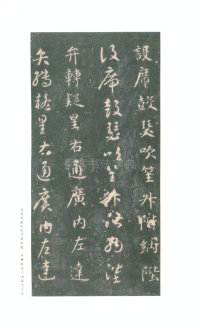 設席鼓瑟吹笙升階納陛
設席鼓瑟吹笙升階納陛
弁轉疑星右通廣內左達
弁轉疑星右通廣內左達